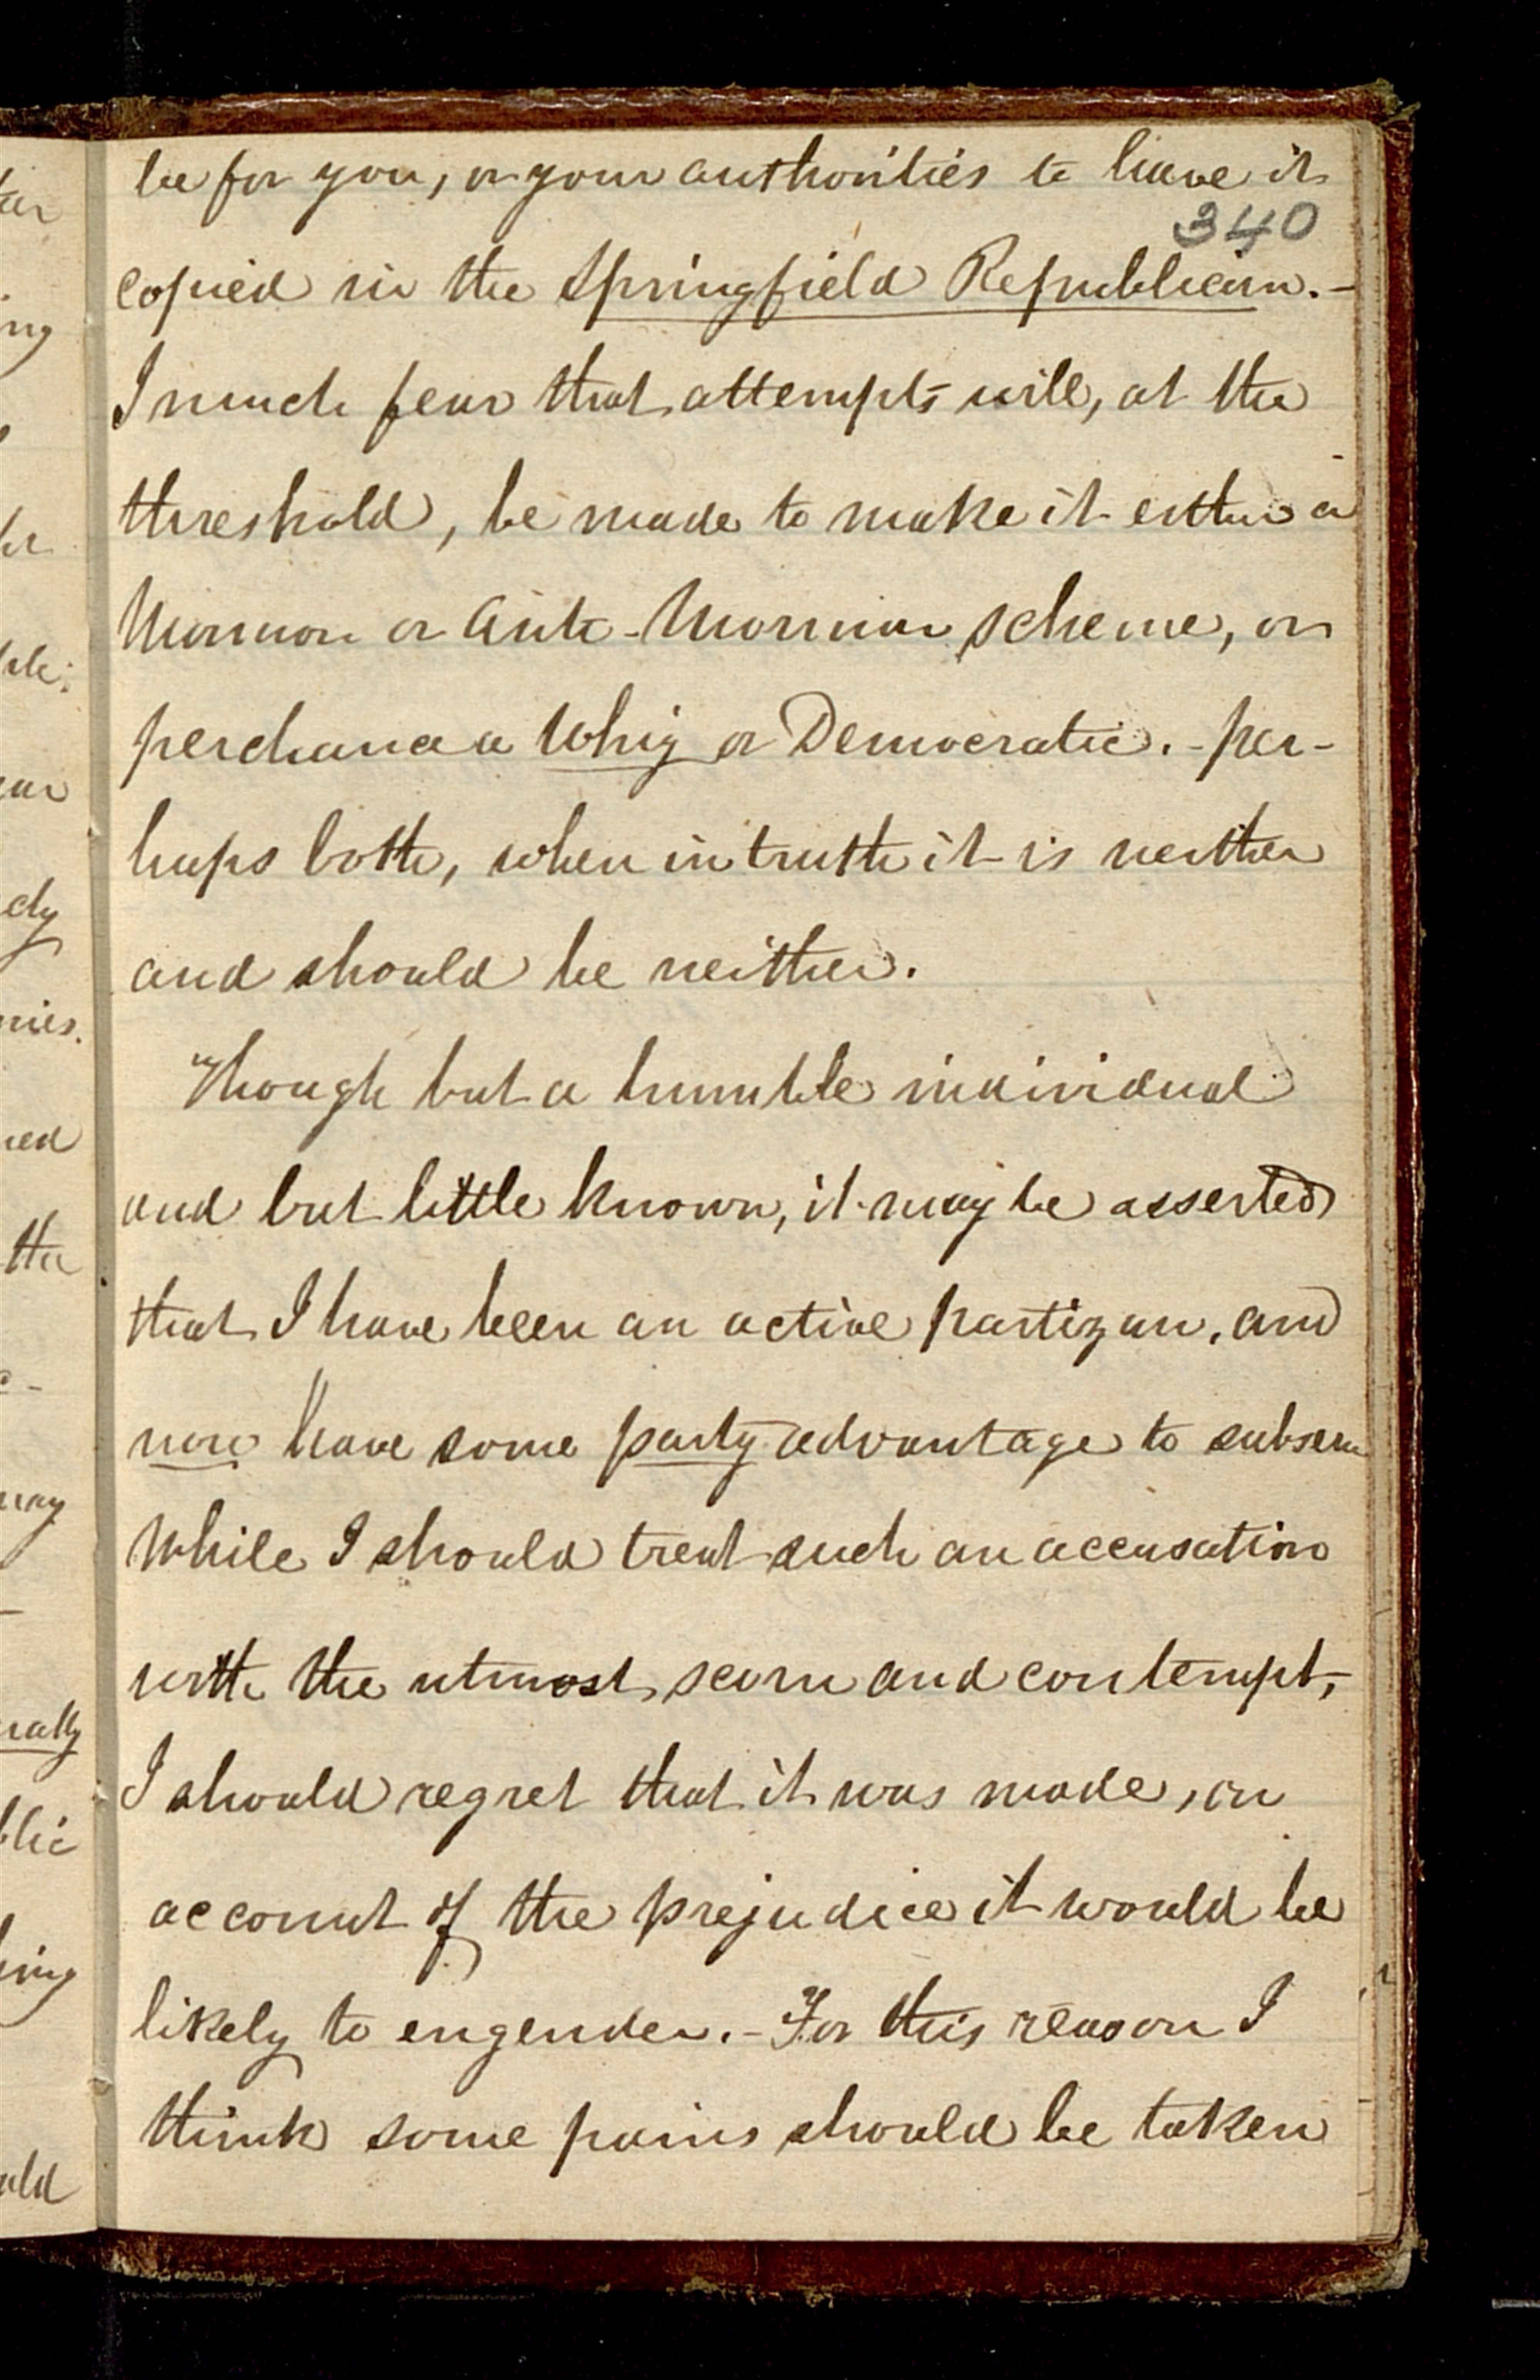 be for you, or your authorities to have it
340
copied in the Springfield Republican.-
I much fear that attempts will, at the
threshold, be made to make it either a
Mormon or Anti-Mormon scheme, or
perchance a Whig or Democratic.- per-
haps both, when in truth it is neither
and should be neither.
Though but a humble individual
and but little known, it may be asserted
that I have been an active partizan, and
now have some party advantage to subserve
While I should treat such an accusation
with the utmost scorn and contempt,
I should regret that it was made, on
account of the prejudice it would be
likely to engender.- For this reason I
think some pains should be taken